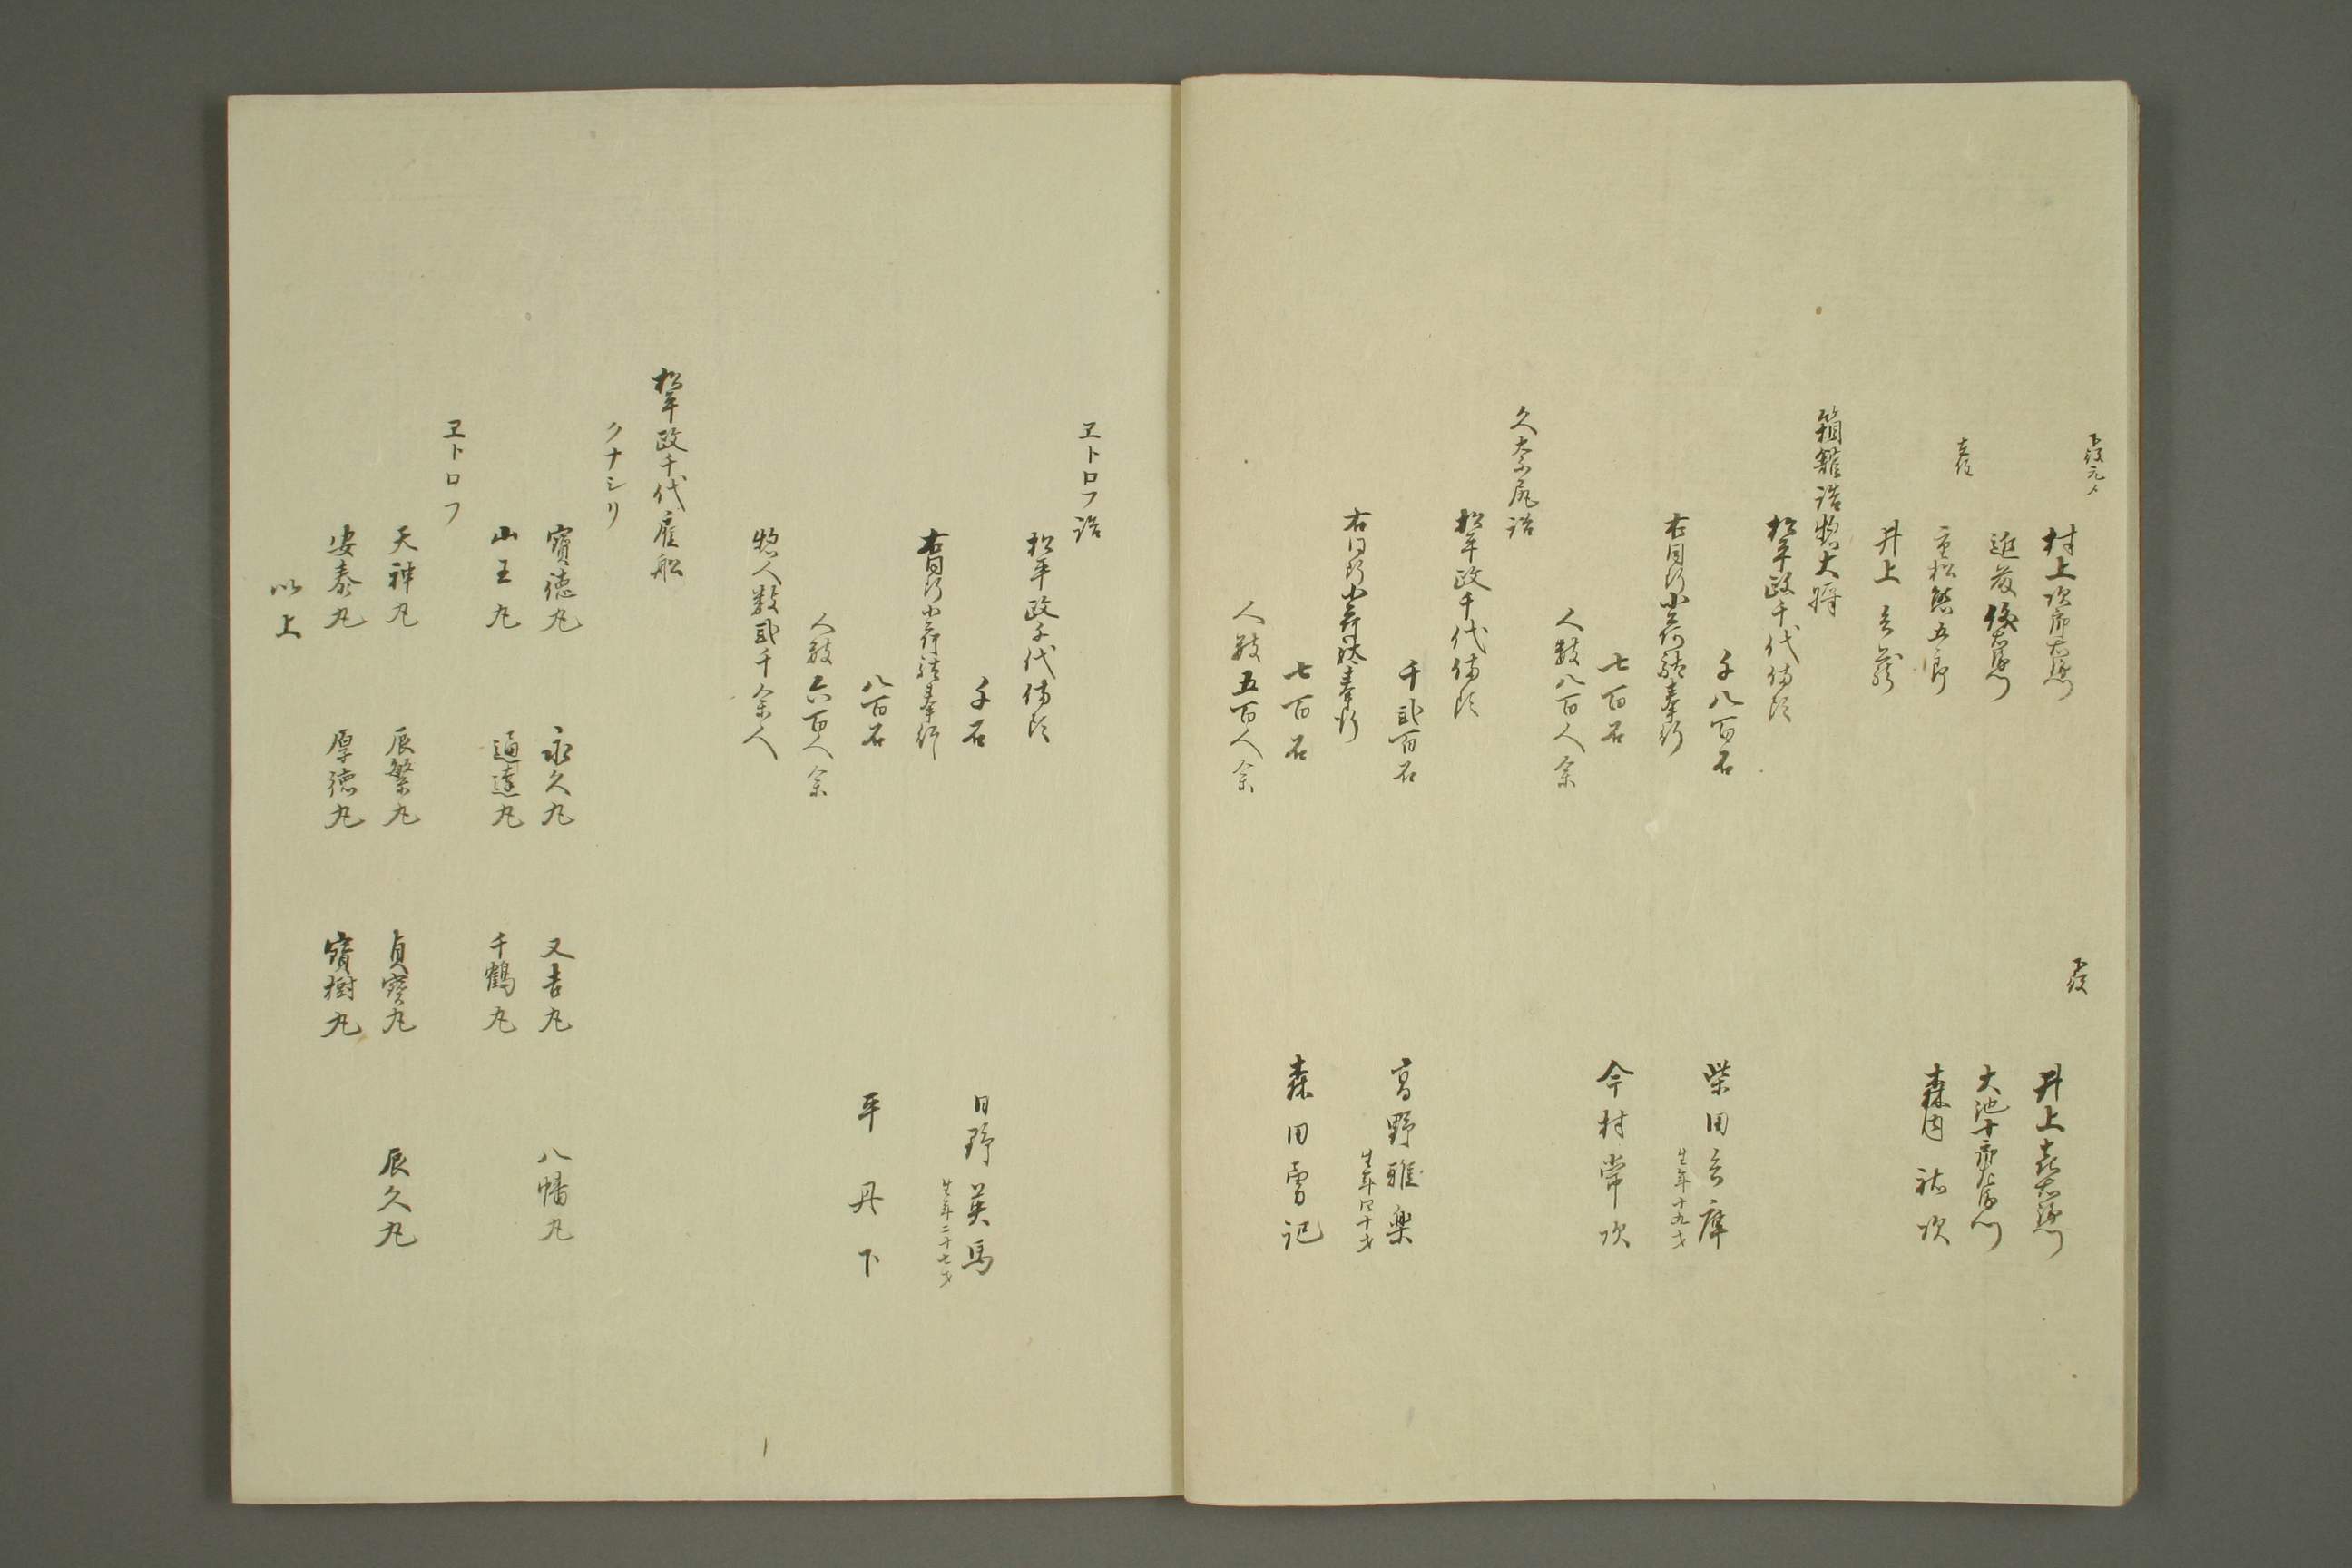 下役元〆
村上次郎右衛門
下役
井上喜右衛門
近藤儀右衛門
大池十郎左衛門
主役
重松熊五郎
森内祐次
井上兵蔵
箱館詰惣大将
松平政千代備頭
千八百石
柴田兵庫
生年十九才
右同所小荷駄奉行
七百石
今村常次
人数八百人余
久奈尻詰
松平政千代備頭
千弐百石
高野雅楽
生年四十才
右同所小荷駄奉行
七百石
森田雪記
人数五百人余
ヱトロフ詰
松平政千代備頭
千石
日野英馬
生年二十七才
右同所小荷駄奉行
八百石
平丹下
人数六百人余
惣人数弐千余人
松平政千代雇船
クナシリ
寳徳丸 永久丸 又吉丸 八幡丸
山王丸 通達丸 千鶴丸
ヱトロフ
天神丸 辰繁丸 貞宝丸 辰久丸
安泰丸 厚徳丸 寳樹丸
以上